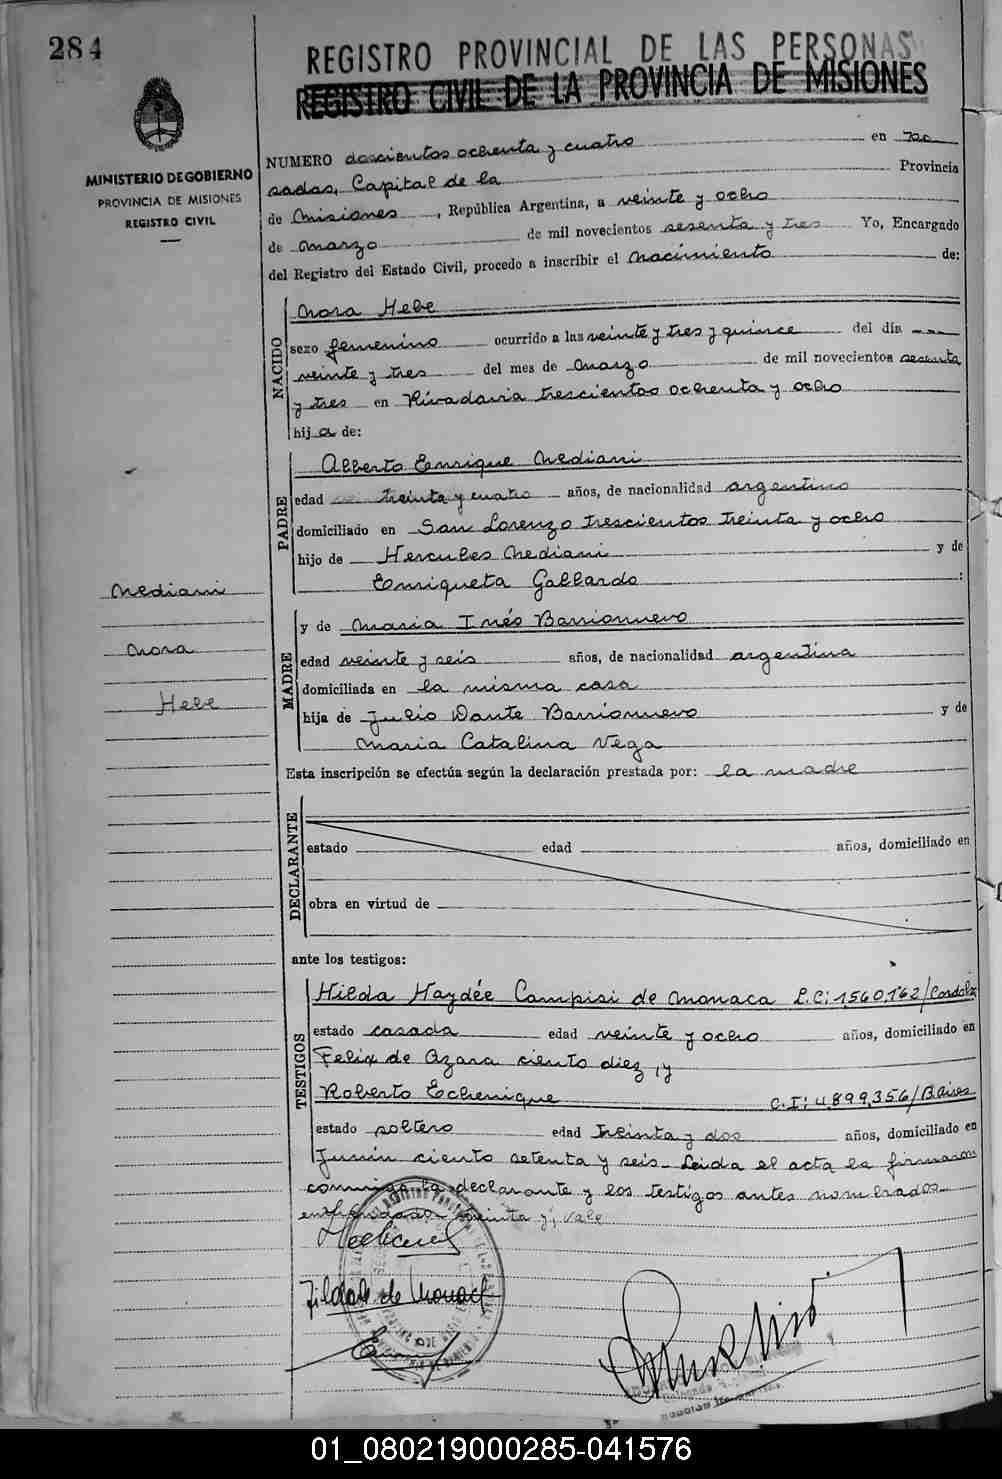 284
REGISTRO PROVINCIAL DE LAS PERSONAS
REGISTRO CIVIL DE LA PROVINCIA DE MISIONES
MINISTERIO DE GOBIERNO
PROVINCIA DE MISIONES
REGISTRO CIVIL
NUMERO doscientos ochenta y cuatro en Po
sadas, Capital de la Provincia
de Misiones, República Argentina, a veinte y ocho
de Marzo de mil novecientos sesenta y tres Yo, Encargado
del Registro del Estado Civil, procedo a inscribir el Nacimiento de:
NACIDO
Nora Hebe
sexo femenino ocurrido a las veinte y tres y quince del día
veinte y tres del mes de Marzo de mil novecientos sesenta
y tres en Rivadavia trescientos ochenta y ocho
hija de:
PADRE
Alberto Enrique Mediani
edad treinta y cuatro años, de nacionalidad argentino
domiciliado en San Lorenzo trescientos treinta y ocho
hijo de Hercules Mediani y de
Enriqueta Gallardo :
Mediani
Nora
Hebe
MADRE
y de Maria Inés Barrionuevo
edad veinte y seis años, de nacionalidad argentina
domiciliada en la misma casa
hija de Julio Dante Barrionuevo y de
Maria Catalina Vega
Esta inscripción se efectúa según la declaración prestada por: la madre
DECLARANTE
estado edad años, domiciliado en
obra en virtud de
ante los testigos:
TESTIGOS
Hilda Haydée Campisi de Monaca L.C: 1,560,162/Cordoba
estado casada edad veinte y ocho años, domiciliado en
Felix de Azara ciento diez, y
Roberto Echenique C.I: 4,899,356/B.Aires
estado soltero edad treinta y dos años, domiciliado en
Junin ciento setenta y seis_ Leida el acta la firmaron
conmigo la declarante y los testigos antes nombrados_
enmendado: treinta y; vale
Hilda de Monaca
01_080219000285-041576